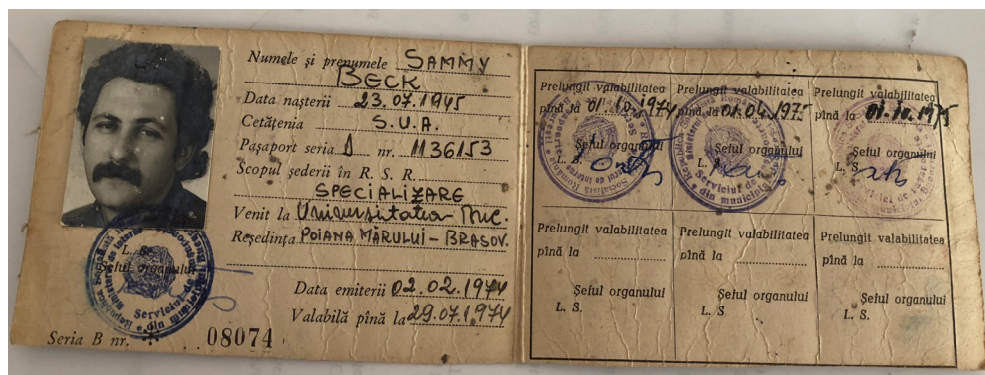 Numele și prenumele SAMMY
BECK
Data nașterii 23.07.1945
Cetățenia S.U.A.
Pașaport seria D nr. 1136153
Scopul șederii în R. S. R.
SPECIALIZARE
Venit la Universitatea Buc.
Reședința POIANA MĂRULUI - BRAȘOV.
Șeful organului
Data emiterii 02.02.1974
Valabilă pînă la 29.07.1974
Seria B nr. 08074
Prelungit valabilitatea
pînă la 01.10.1974
Șeful organului
L. S.
Prelungit valabilitatea
pînă la 01.04.1975
Șeful organului
L. S.
Serviciul de
Prelungit valabilitatea
pînă la 01.10.1975
Șeful organului
L. S.
Prelungit valabilitatea
pînă la
Șeful organului
L. S.
Prelungit valabilitatea
pînă la
Șeful organului
L. S
Prelungit valabilitatea
pînă la
Șeful organului
L. S.